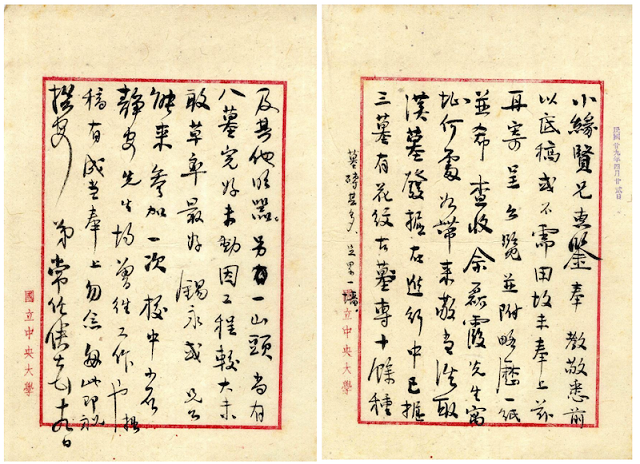 小緣賢兄惠鑒奉 教敬悉前
以底稿或不需用故未奉上茲
再寄呈 公覽並附略歷一紙
並希 查收余磊霞先生寓
址何處 帶來敬當
漢墓發掘在進行中已掘
三墓有花紋古墓專十餘種
及其他明器另有一山頭尚有
八墓完好未動因工程較大未
敢草率最好 錫永或 兄
能來參加一次 校中
靜安先生均曾往工作
稿有成當奉上勿念 此即祝
撰安
弟 常任俠
國立中央大學
國立中央大學
民國廿九年四月廿 日